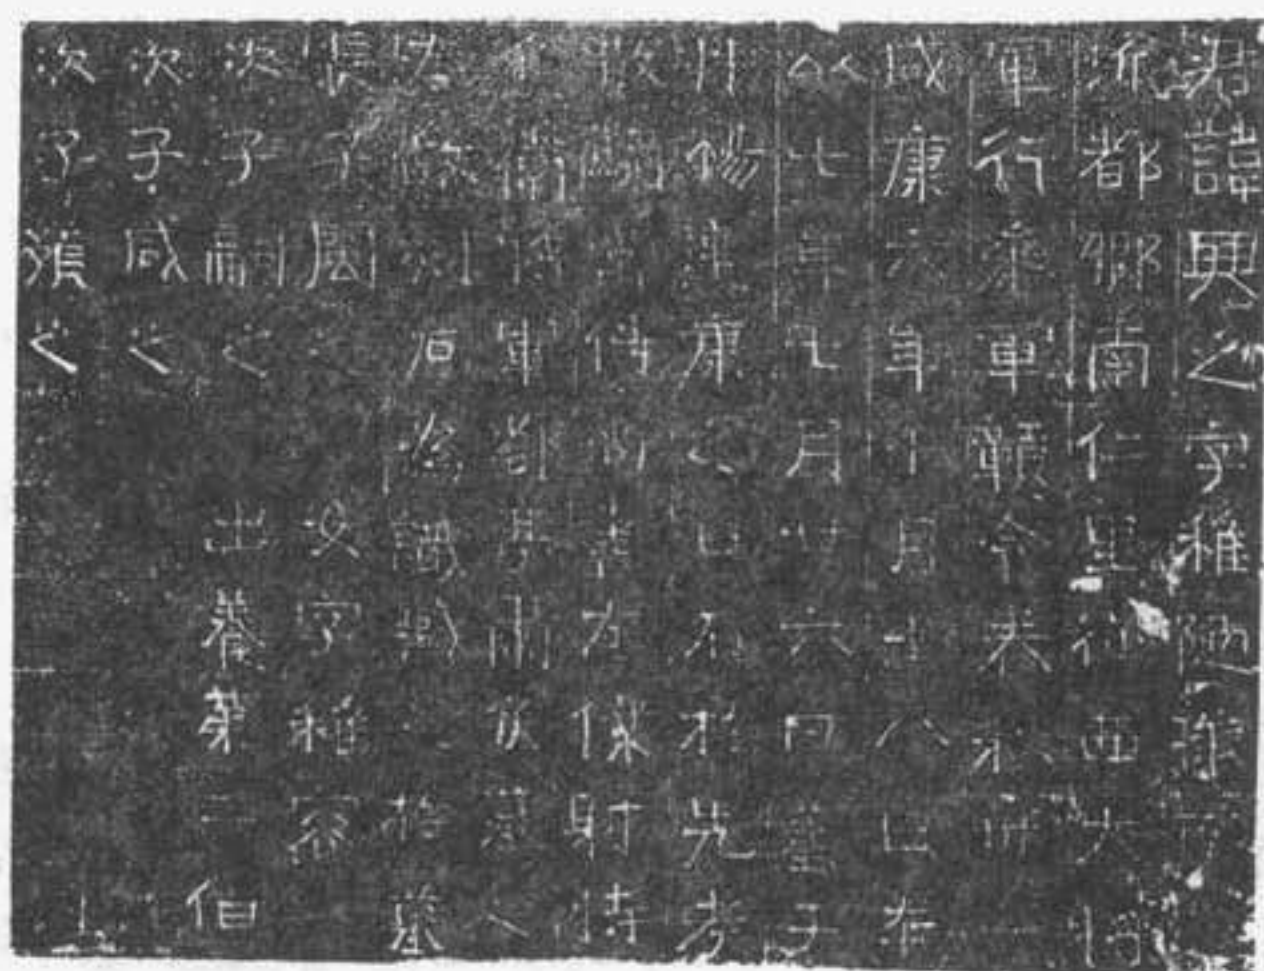 君諱興之字稚陋琅耶
沂都鄉南仁里征西大將
軍行參軍贛令春秋卅一
咸康六年十月十八日卒
以七年七月廿六日葬于
丹楊建康之白石於先考
散騎常侍尚書左僕射特
進衛將軍都亭肅侯墓之
左故刻石為識臧之於墓
長子閩之 女字稚容
次子嗣之 出養第二伯
次子咸之
次子預之